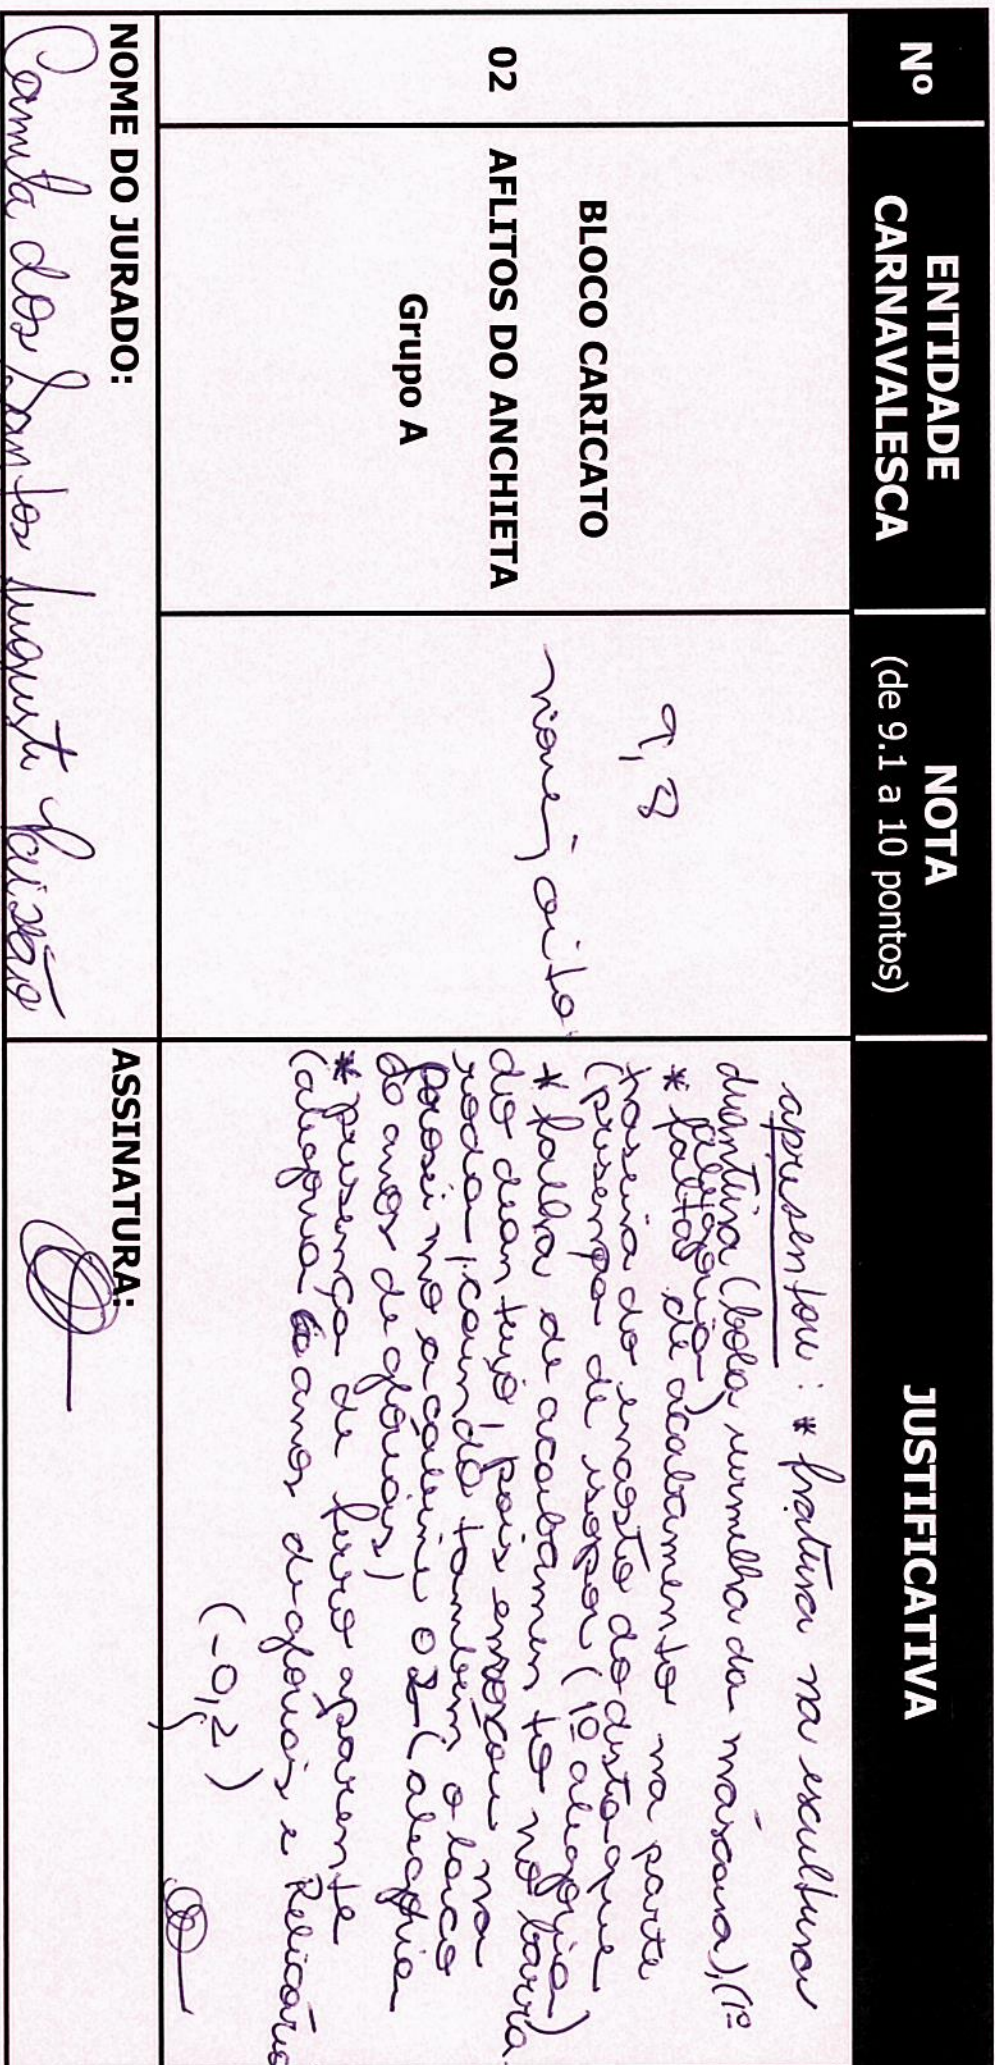 Nº
ENTIDADE
CARNAVALESCA
NOTA
(de 9.1 a 10 pontos)
JUSTIFICATIVA
02
BLOCO CARICATO
AFLITOS DO ANCHIETA
Grupo A
9,8
nove, oito
apresentou: * fratura na escultura
dianteira (bola vermelha da máscara) (1º
alegoria)
* falta de acabamento na parte
traseira do encosto do destaque
(presença de isopor (1º alegoria)
* falha de acabamento no barra
do dianteiro, pois enroscou na
roda, caindo também o laico
do anos de glórias)
* presença de ferro aparente
(alegoria 60 anos de glorias e Relicário
(-0,2)
NOME DO JURADO:
Camila dos Santos Augusti Paixão
ASSINATURA: